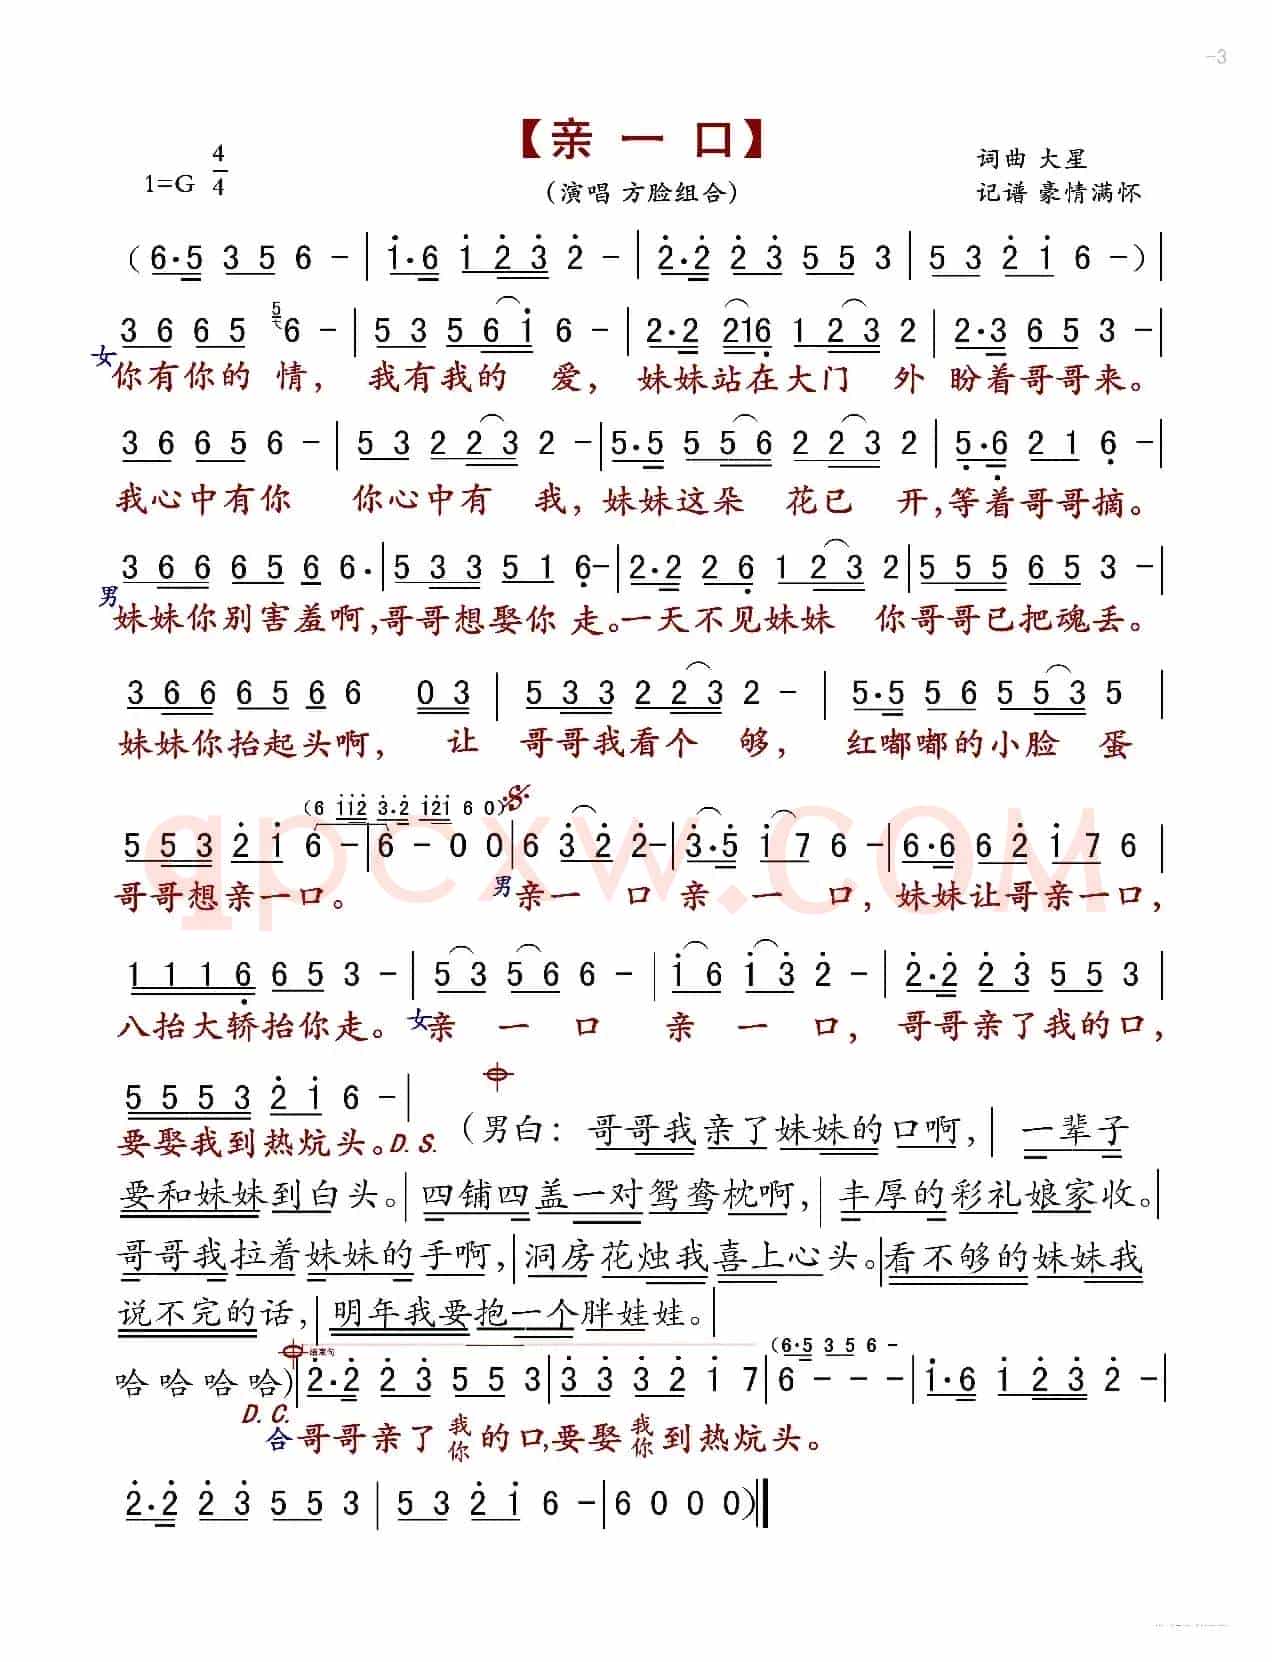 -3
【亲 一 口】
1=G 4/4
(演唱 方脸组合)
词曲 大星
记谱 豪情满怀
(6·5 3 5 6 - | i·6 i 2̇ 3̇ 2̇ - | 2̇·2̇ 2̇ 3̇ 5 5 3 | 5 3 2̇ i 6 -) |
3 6 6 5 ⁵6 - | 5 3 5 6 i 6 - | 2·2 216̣ 1 2 3 2 | 2·3 6 5 3 - |
女 你有你的 情， 我有我的 爱， 妹妹站在大门 外 盼着哥哥来。
3 6 6 5 6 - | 5 3 2 2 3 2 - | 5·5 5 5 6 2 2 3 2 | 5̣·6̣ 2 1 6̣ - |
我心中有你 你心中有 我，妹妹这朵 花已 开，等着哥哥摘。
3 6 6 6 5 6 6· | 5 3 3 5 1 6̣ - | 2·2 2 6̣ 1 2 3 2 | 5 5 5 6 5 3 - |
男 妹妹你别害羞啊，哥哥想娶你 走。一天不见妹妹 你哥哥已把魂丢。
3 6 6 6 5 6 6 0 3 | 5 3 3 2 2 3 2 - | 5·5 5 6 5 5 3 5 |
妹妹你抬起头啊， 让 哥哥我看个 够， 红嘟嘟的小脸 蛋
(6 i i 2̇ 3̇·2̇ i 2̇ i 6 0)
5 5 3 2̇ i 6 - | 6 - 0 0 | 6 3̇ 2̇ 2̇ - | 3̇·5̇ i 7 6 - | 6·6 6 2̇ i 7 6 |
哥哥想亲一口。 男 亲一 口 亲 一 口，妹妹让哥亲一口，
1 1 1 6̣ 6 5 3 - | 5 3 5 6 6 - | i 6 i 3̇ 2̇ - | 2̇·2̇ 2̇ 3̇ 5 5 3 |
八抬大轿抬你走。 女 亲 一 口 亲 一 口，哥哥亲了我的口，
5 5 5 3 2̇ i 6 - |
要娶我到热炕头。D.S. (男白：哥哥我亲了妹妹的口啊，| 一辈子
要和妹妹到白头。| 四铺四盖一对鸳鸯枕啊，| 丰厚的彩礼娘家收。|
哥哥我拉着妹妹的手啊，| 洞房花烛我喜上心头。| 看不够的妹妹我
说不完的话，| 明年我要抱一个胖娃娃。|
结束句 (6·5 3 5 6 -
哈哈哈哈) | 2̇·2̇ 2̇ 3̇ 5 5 3 | 3̇ 3̇ 3̇ 2̇ i 7 | 6 - - - | i·6 i 2̇ 3̇ 2̇ - |
D.C.
合 哥哥亲了 我/你 的口，要娶 我/你 到热炕头。
2̇·2̇ 2̇ 3̇ 5 5 3 | 5 3 2̇ i 6 - | 6 0 0 0) ||
qpcxw.COM